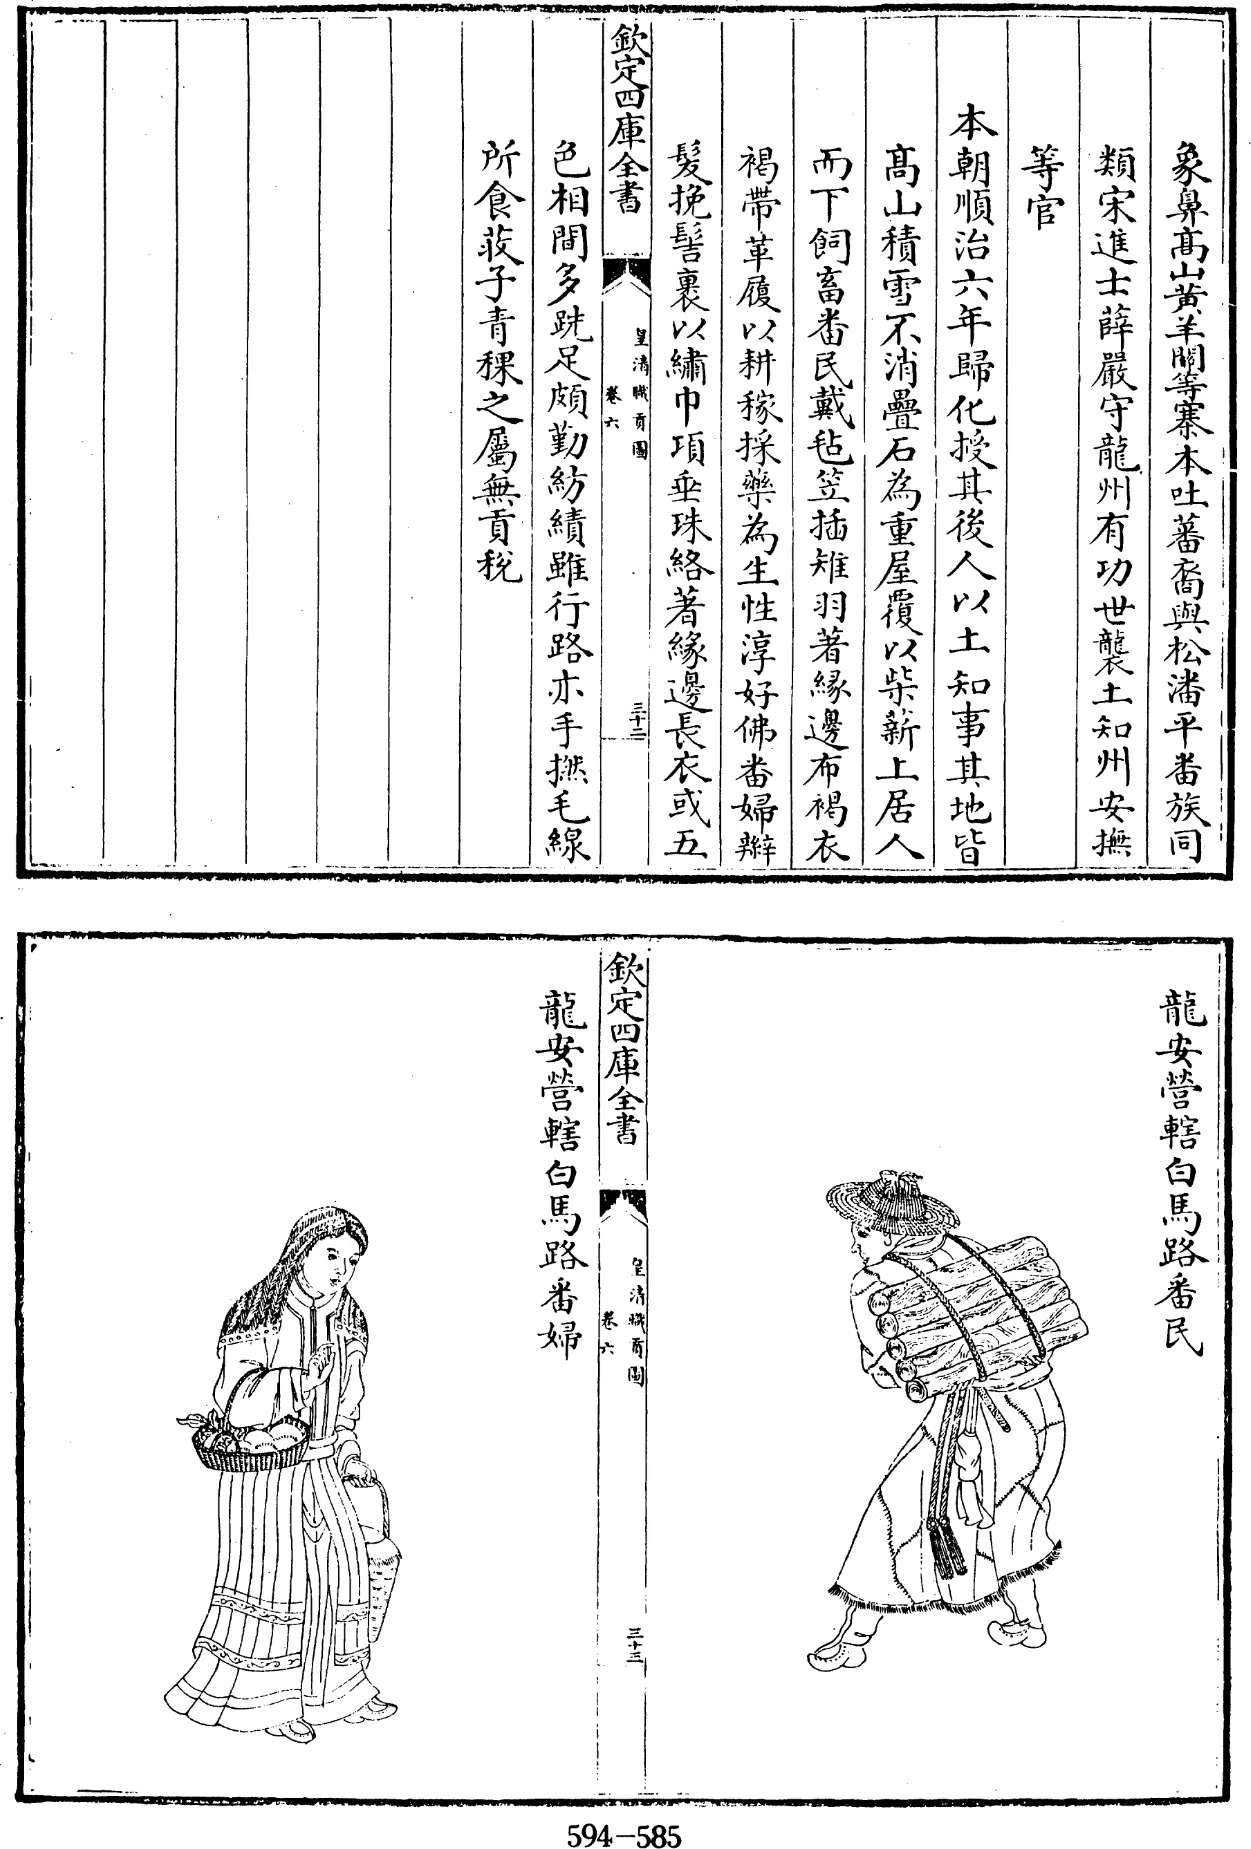 象鼻高山黄羊關等寨本吐蕃裔與松潘平番族同
類宋進士薛嚴守龍州有功世襲土知州安撫
等官
本朝順治六年歸化授其後人以土知事其地皆
高山積雪不消疊石為重屋覆以柴薪上居人
而下飼畜番民戴毡笠插雉羽著緣邊布褐衣
褐帶革履以耕稼採藥為生性淳好佛番婦辮
髮挽髻裹以繡巾項垂珠絡著緣邊長衣或五
欽定四庫全書
皇清職貢圖
卷六
三十二
色相間多跣足頗勤紡績雖行路亦手撚毛線
所食荍子青稞之屬無貢稅
龍安營轄白馬路番民
欽定四庫全書
皇清職貢圖
卷六
三十三
龍安營轄白馬路番婦
594-585